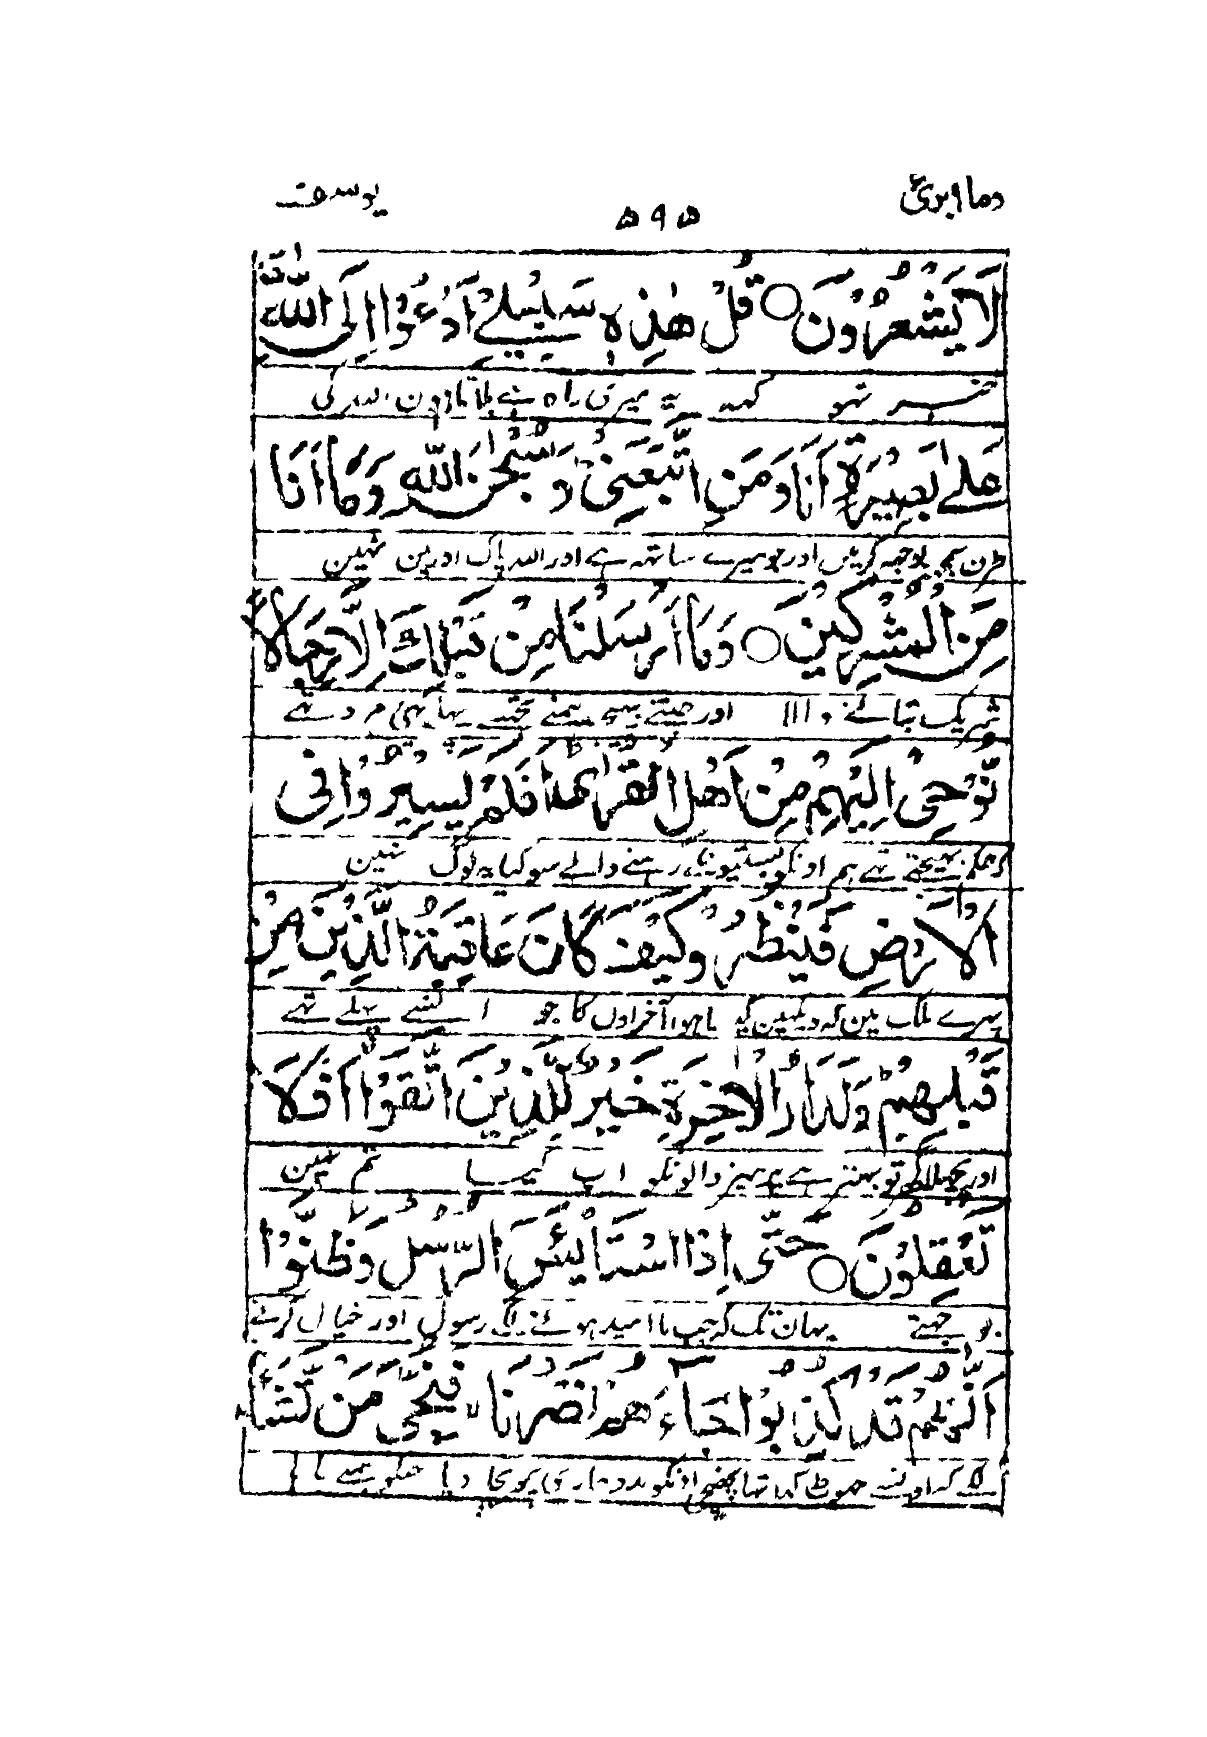 وما ابرئ ۵۹۵ یوسف
لَا يَشْعُرُوْنَ ○ قُلْ هٰذِهٖ سَبِيْلِيْۤ اَدْعُوْۤا اِلَى اللّٰهِ
خبر نہو کہہ یہ میری راہ ہے بلاتا ہون اللہ کی
عَلٰى بَصِيْرَةٍ اَنَا وَمَنِ اتَّبَعَنِيْ وَسُبْحٰنَ اللّٰهِ وَمَاۤ اَنَا
طرف سمجھ بوجھ کر مین اور جو میرے ساتھ ہے اور اللہ پاک اور مین نہین
مِنَ الْمُشْرِكِيْنَ ○ وَمَاۤ اَرْسَلْنَا مِنْ قَبْلِكَ اِلَّا رِجَالًا
شریک بتانے والا اور جتنے بھیجے ہمنے تجھسے پہلے یہی مرد تھے
نُّوْحِيْۤ اِلَيْهِمْ مِّنْ اَهْلِ الْقُرٰى اَفَلَمْ يَسِيْرُوْا فِي
کہ حکم بھیجتے تھے ہم اونکو بستیونکے رہنے والے سو کیا یہ لوگ نہین
الْاَرْضِ فَيَنْظُرُوْا كَيْفَ كَانَ عَاقِبَةُ الَّذِيْنَ مِنْ
پھرے ملک مین کہ دیکھین کیسا ہوا آخر اون کا جو انسے پہلے تھے
قَبْلِهِمْ وَلَدَارُ الْاٰخِرَةِ خَيْرٌ لِّلَّذِيْنَ اتَّقَوْا اَفَلَا
اور پچھلا گھر تو بہتر ہے پرہیز والونکو اب کیا تم نہین
تَعْقِلُوْنَ ○ حَتّٰۤى اِذَا اسْتَايْـَٔسَ الرُّسُلُ وَظَنُّوْۤا
بوجھتے یہان تک کہ جب نا امید ہونے لگے رسول اور خیال کرنے
اَنَّهُمْ قَدْ كُذِبُوْا جَآءَهُمْ نَصْرُنَا فَنُجِّيَ مَنْ نَّشَآءُ
لگے کہ اونسے جھوٹ کہا تھا پہنچی اونکو مدد ہماری پھر بچا دیا جنکو ہمنے چاہا